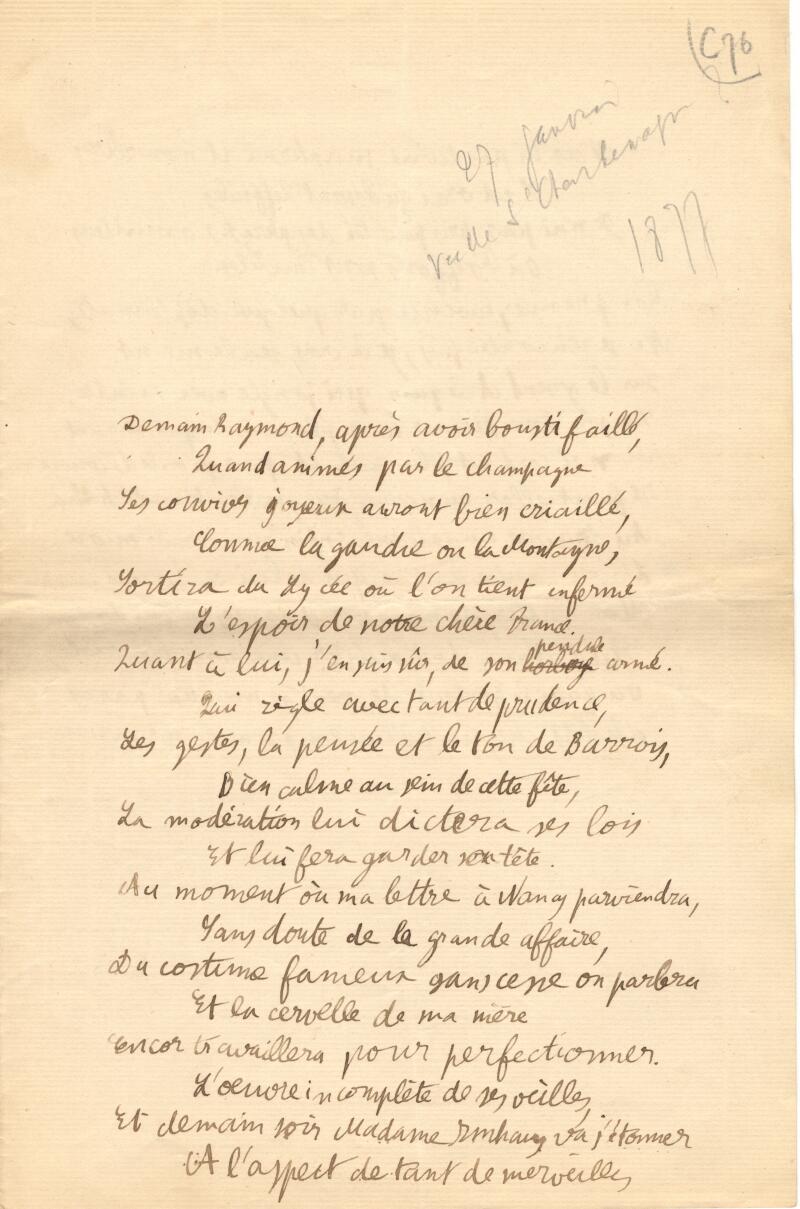 C76
27 janvier
vu de St Charlemagne
1877
Demain Raymond, après avoir boustifaillé,
Quand animés par le champagne
Les convives joyeux auront bien criaillé,
Comme la gauche ou la Montagne,
Sortira du Lycée où l'on tient enfermé
L'espoir de notre chère France.
pendule
Quant à lui, j'en suis sûr, de son horloge armé.
Qui règle avec tant de prudence,
Les gestes, la pensée et le ton de Barrois,
Bien calme au sein de cette fête,
La modération lui dictera ses lois
Et lui fera garder sa tête.
Au moment où ma lettre à Nancy parviendra,
Sans doute de la grande affaire,
Du costume fameux sans cesse on parlera
Et la cervelle de ma mère
Encor travaillera pour perfectionner.
L'oeuvre incomplète de ses veilles,
Et demain soir Madame va s'étonner
A l'aspect de tant de merveilles